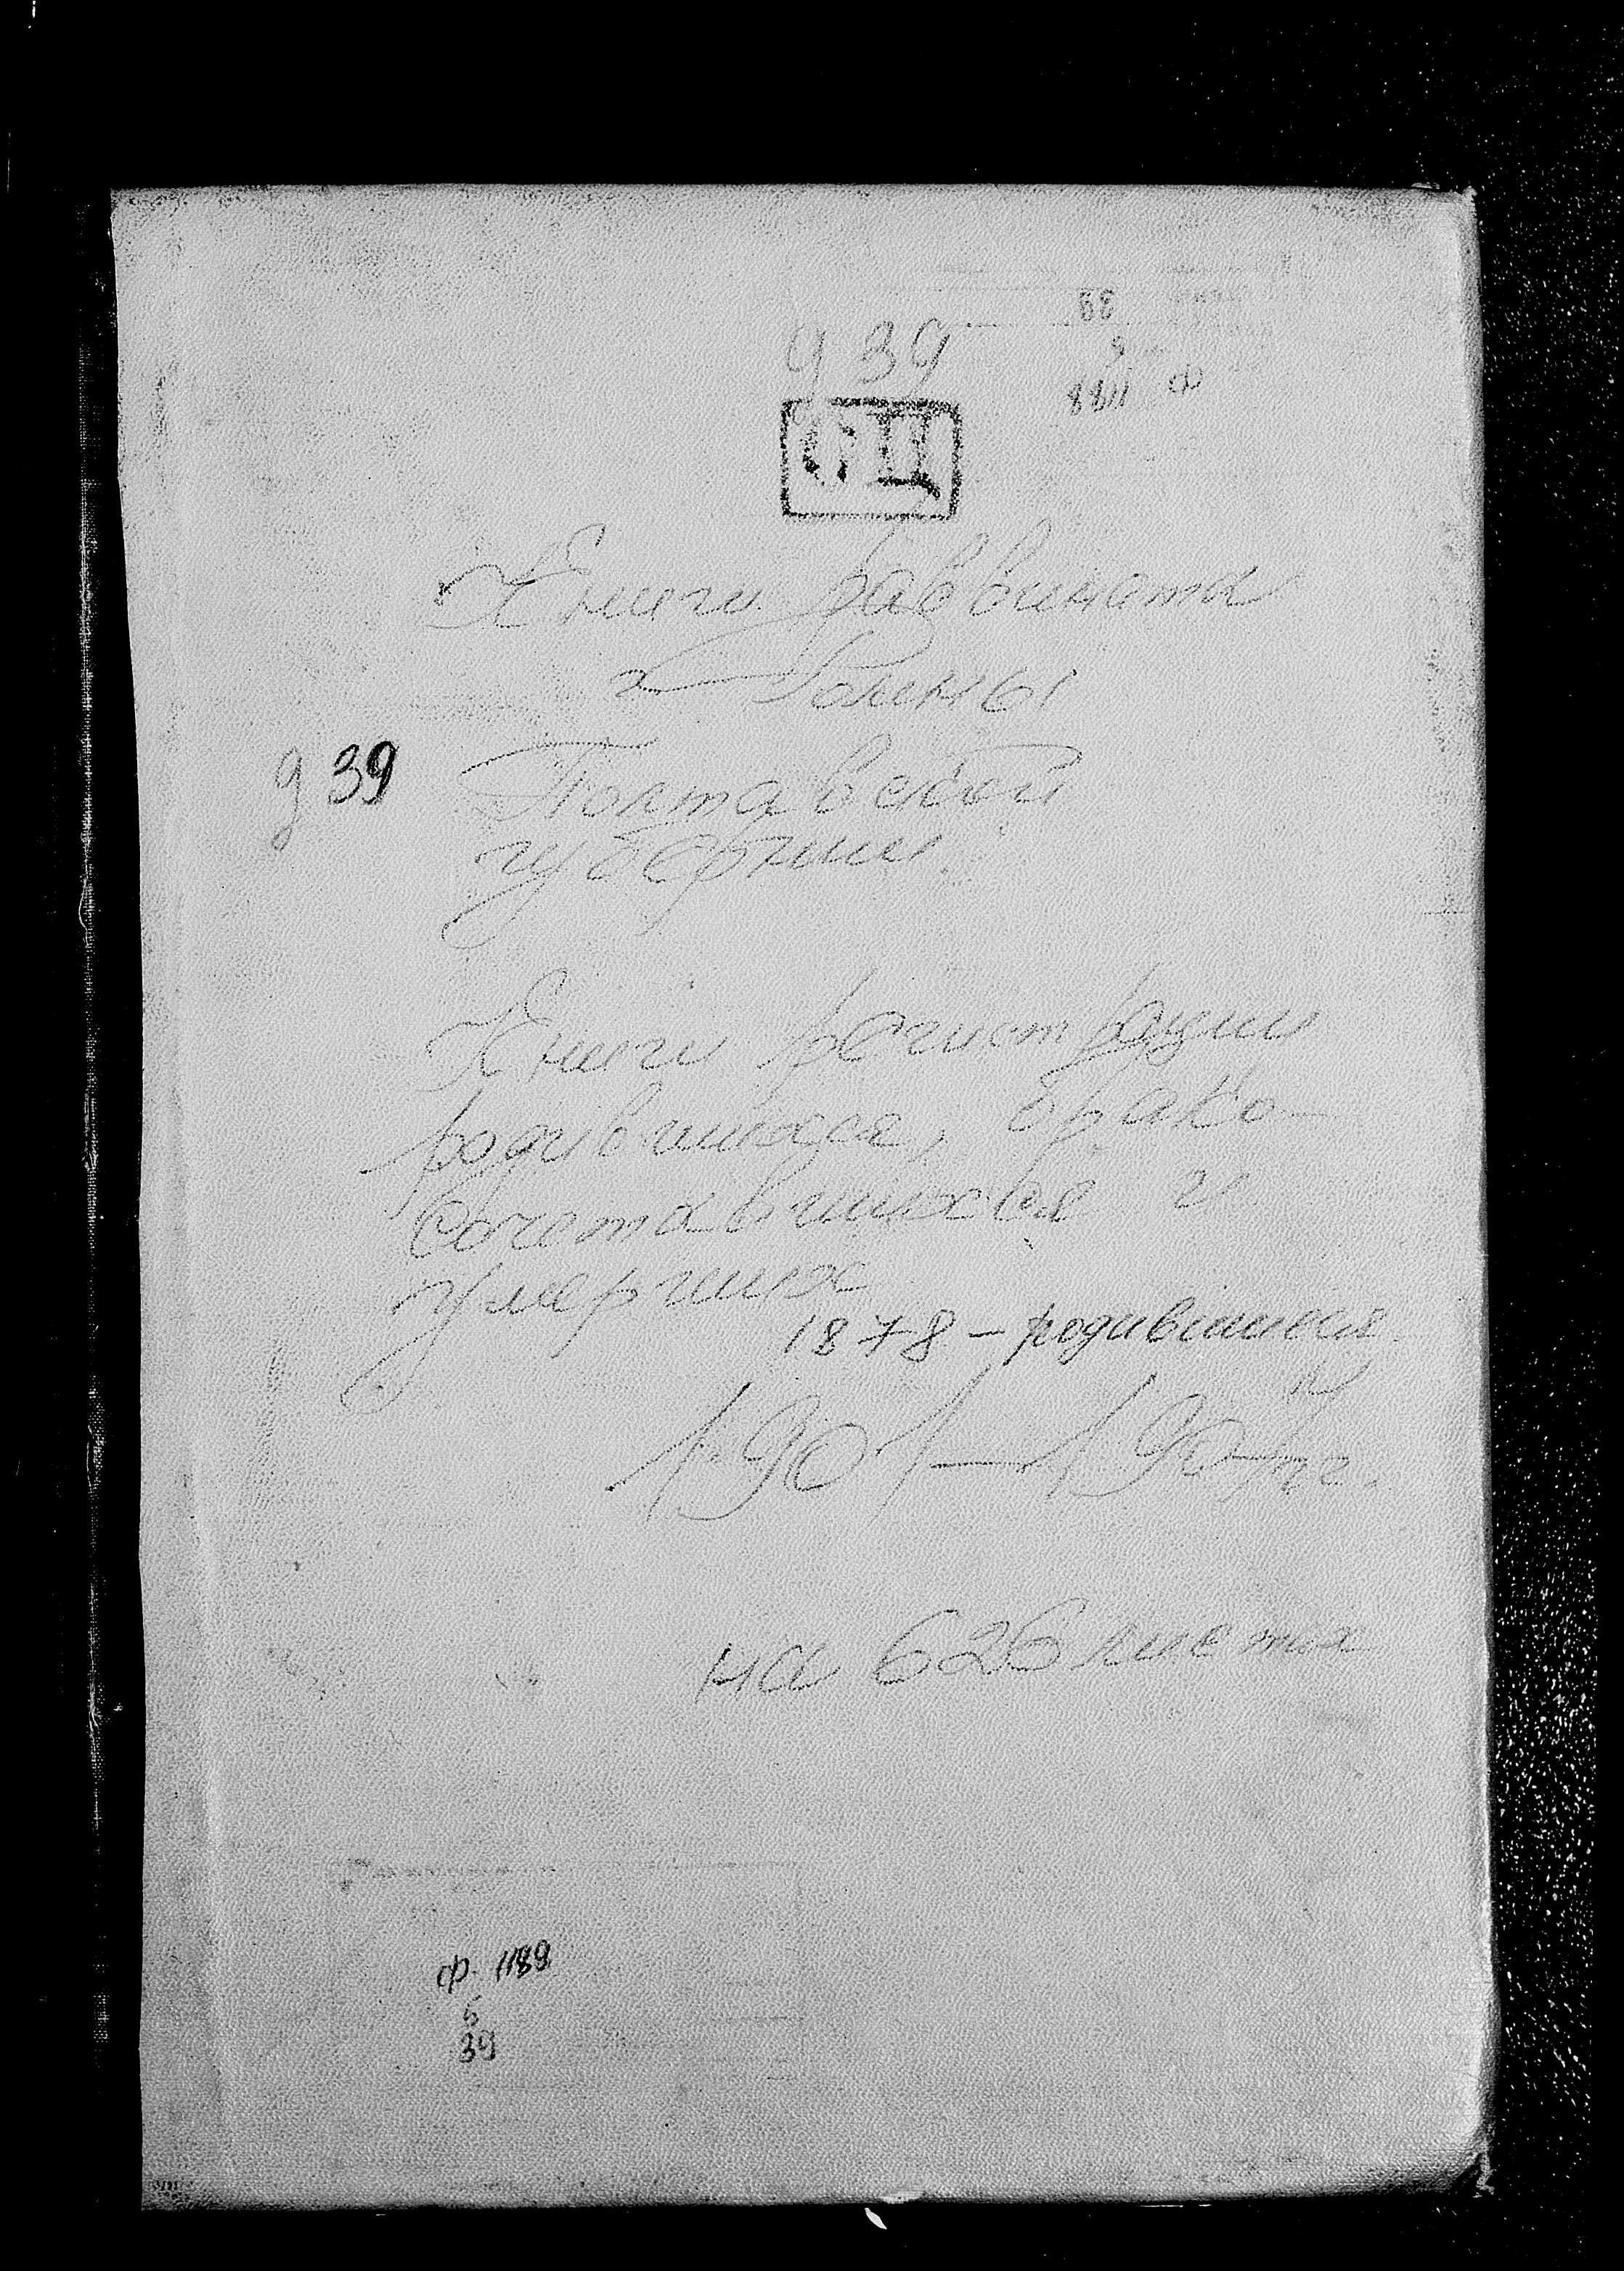 д 39
39
6
ф 1188
ОЦ
Книги раввината
г. Ромны
д 39
Полтавской
губернии.
Книги регистрации
родившихся, брако-
сочетавшихся и
умерших
1878 – родившиеся
1901 – 190
на 626 листах
ф. 1188
6
39